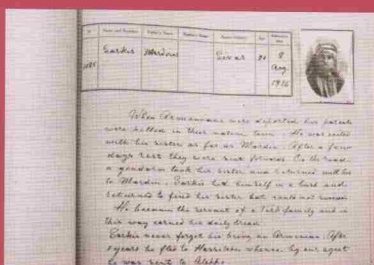 Sarkis Mardiros Sivas 20 8
Aug.
1926
When Armenians were deported his parents
were killed in their native town. He was exiled
with his sister as far as Mardin. After a few
days rest they were sent forward. On the road
a gendarm took his sister and returned with her
to Mardin. Sarkis hid himself in a bush and
returned to find his sister but could not succeed.
He became the servant of a Turk family and in
this way earned his daily bread.
Sarkis never forgot his being an Armenian. After
years he fled to Harritché whence, by our agent
he was sent to Aleppo